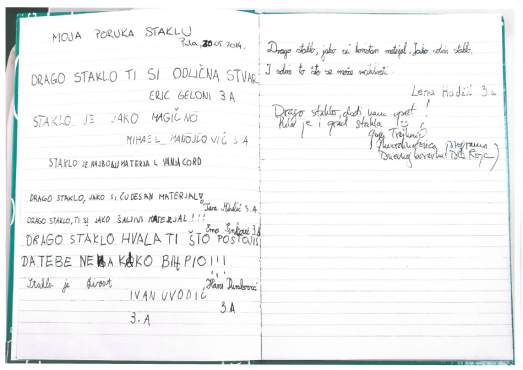 MOJA PORUKA STAKLU
Pula, 20.05.2014.
DRAGO STAKLO TI SI ODLIČNA STVAR
ERIC GELONI 3A
STAKLO JE JAKO MAGIČNO
MIHAEL MANOJLOVIĆ 3 A
STAKLO JE NAJBOLJI MATERIJAL VANJA CORD
DRAGO STAKLO, JAKO SI ČUDESAN MATERIJAL
Jana 3.A
DRAGO STAKLO, TI SI JAKO ŠALJIVI MATERIJAL !!!
Ema 3.A
DRAGO STAKLO HVALA TI ŠTO POSTOJIŠ
DA TEBE NEMA KAKO BIH PIO!!!
Staklo je život
IVAN UVODIĆ
3.A
3.A
Drago staklo, jako si koristan materijal. Jako volim staklo.
I volim to što se može reciklirati.
Lena Hudić 3.a
Drago staklo, dođi nam opet!
Pula je i grad stakla
programa